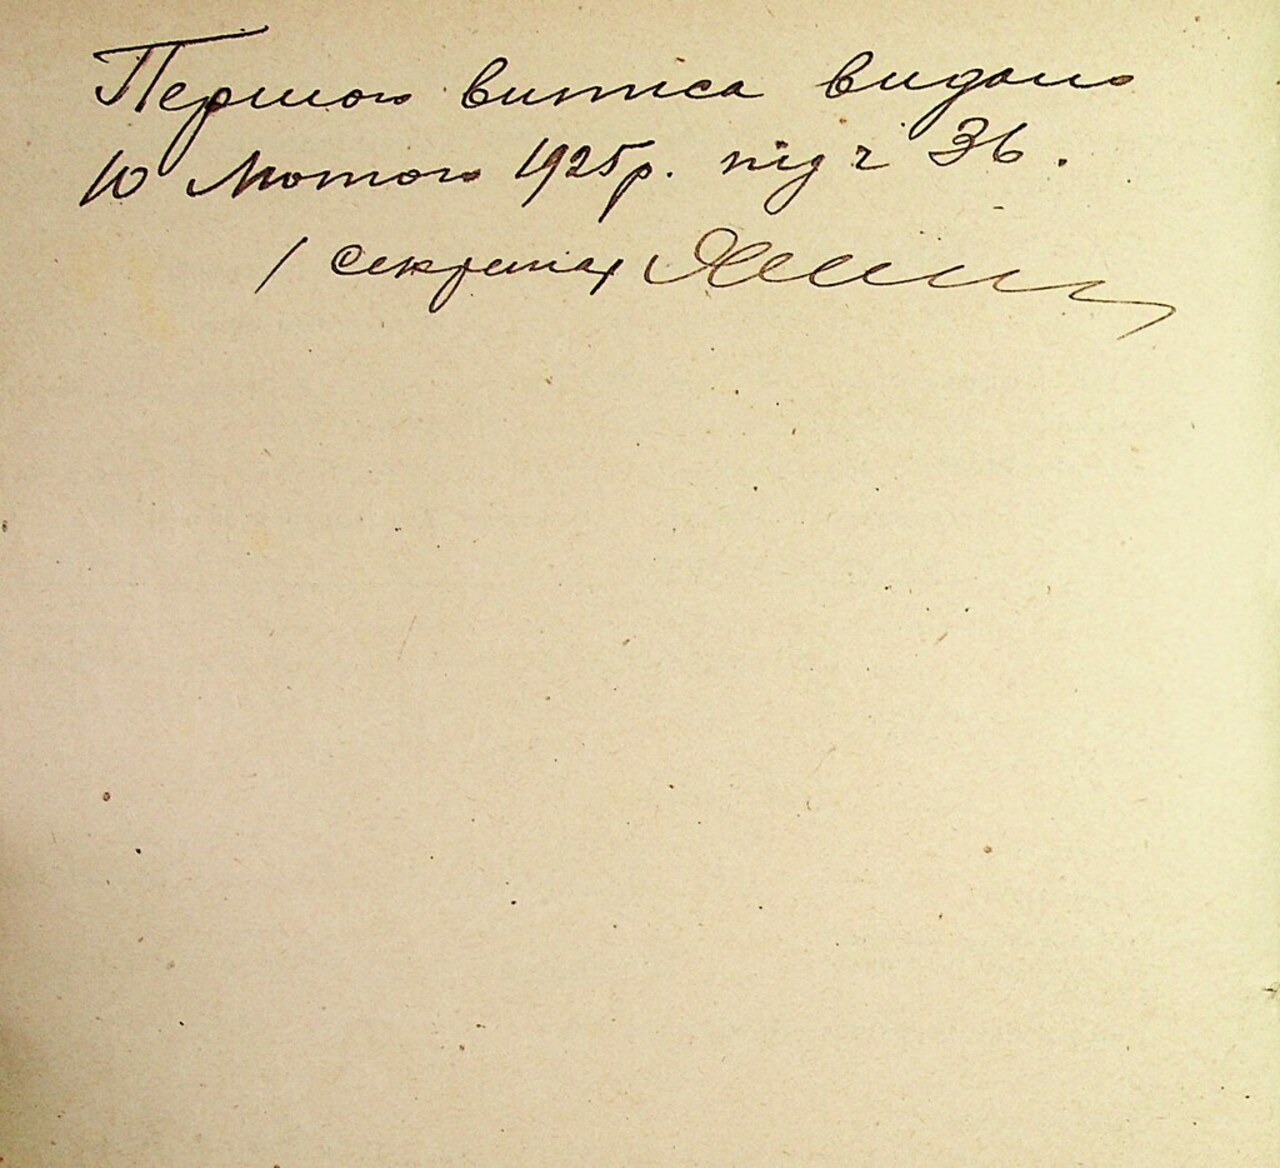 Першого витиса видано
10 Лютого 1925р. під ч 36.
/ секретар